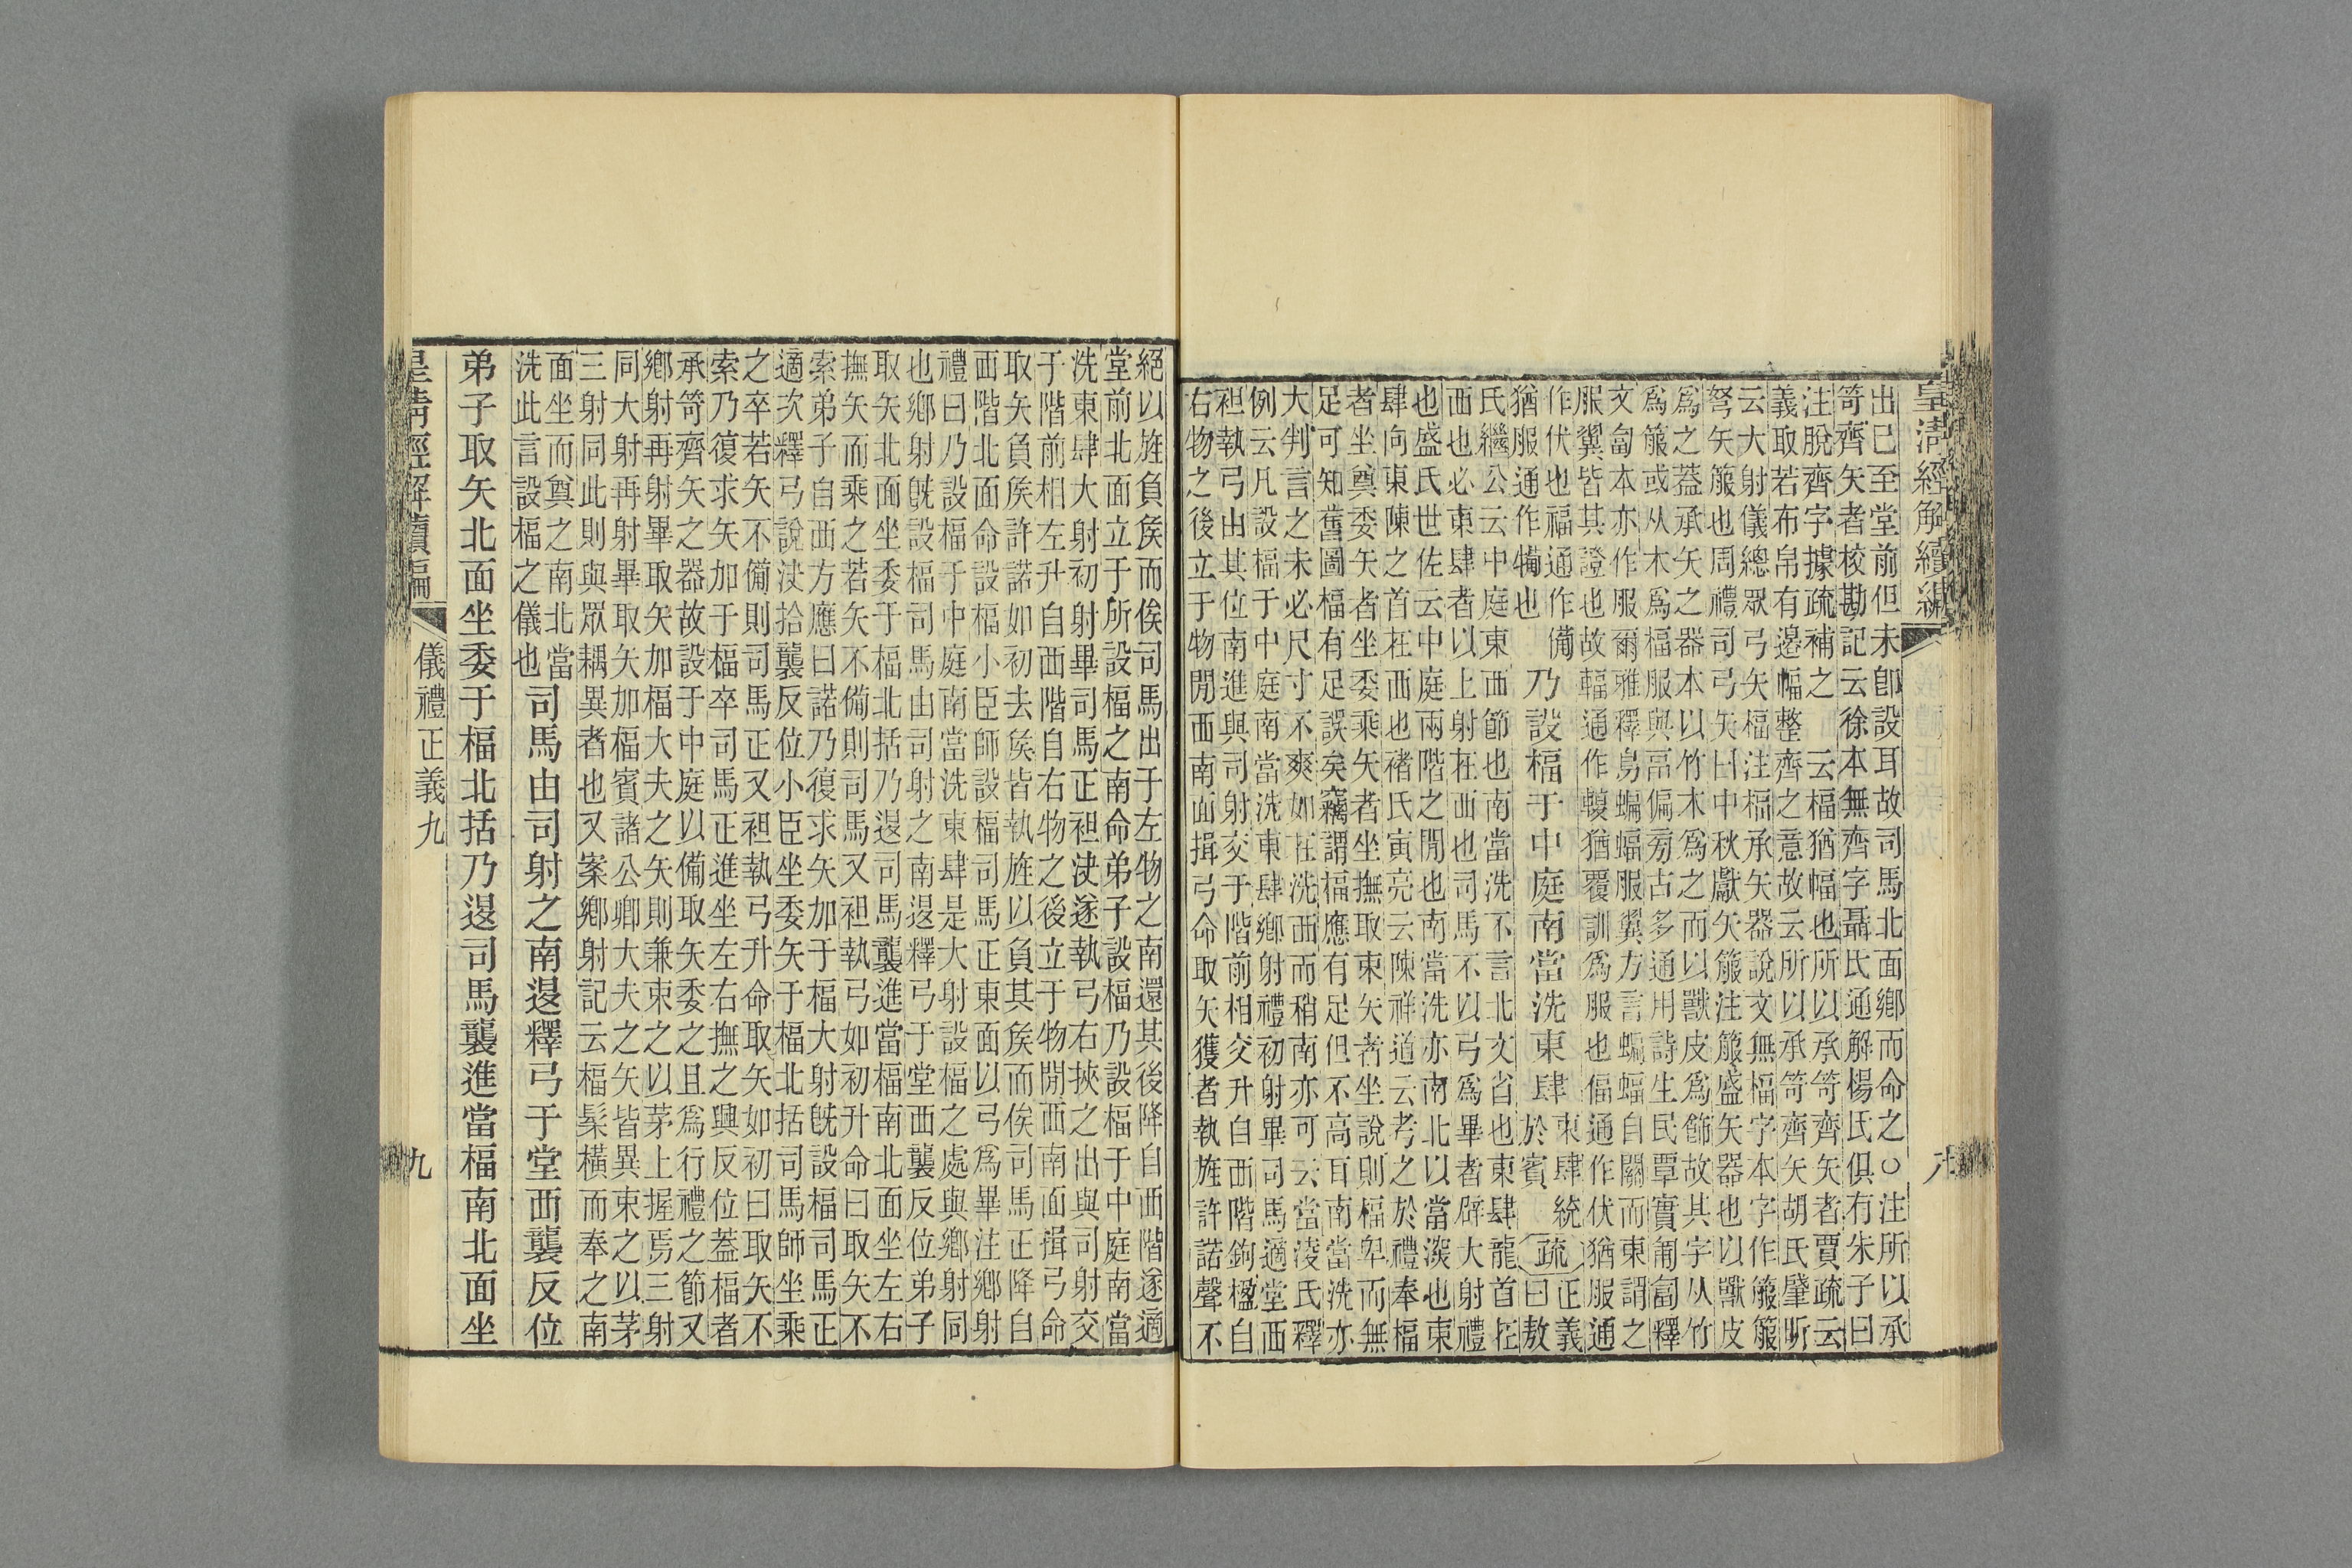 皇清經解續編
出已至堂前但未卽設耳故司馬北面鄉而命之○注所以承
笴齊矢者校勘記云徐本無齊字聶氏通解楊氏俱有朱子曰
注脫齊字據疏補之　云楅猶幅也所以承笴齊矢者賈疏云
義取若布帛有邊幅整齊之意故云所以承笴齊矢胡氏肇昕
云大射儀總眾弓矢楅注楅承矢器說文無楅字本字作箙箙
弩矢箙也周禮司弓矢曰中秋獻矢箙注箙盛矢器也以獸皮
爲之蓋承矢之器本以竹木爲之而以獸皮爲飾故其字从竹
爲箙或从木爲楅服與畐偏旁古多通用詩生民覃實匍匐釋
文匐本亦作服爾雅釋鳥蝙蝠服翼方言蝙蝠自關而東謂之
服翼皆其證也故輻通作輹猶覆訓爲服也偪通作伏猶服通
作伏也福通作備
猶服通作犕也
乃設楅于中庭南當洗東肆
東肆統
於賓
疏
正義
曰敖
氏繼公云中庭東西節也南當洗不言北文省也東肆龍首在
西也必東肆者以上射在西也司馬不以弓爲畢者辟大射禮
也盛氏世佐云中庭兩階之閒也南當洗亦南北以當深也東
肆向東陳之首在西也褚氏寅亮云陳祥道云考之於禮奉楅
者坐奠委矢者坐委乘矢者坐撫取束矢者坐說則楅卑而無
足可知舊圖楅有足誤矣竊謂楅應有足但不高耳南當洗亦
大判言之未必尺寸不爽如在洗西而稍南亦可云當淩氏釋
例云凡設楅于中庭南當洗東肆鄉射禮初射畢司馬適堂西
袒執弓由其位南進與司射交于階前相交升自西階鉤楹自
右物之後立于物閒西南面揖弓命取矢獲者執旌許諾聲不
絕以旌負矦而俟司馬出于左物之南還其後降自西階遂適
堂前北面立于所設楅之南命弟子設楅乃設楅于中庭南當
洗東肆大射初射畢司馬正袒決遂執弓右挾之出與司射交
于階前相左升自西階自右物之後立于物閒西南面揖弓命
取矢負矦許諾如初去矦皆執旌以負其矦而俟司馬正降自
西階北面命設楅小臣師設楅司馬正東面以弓爲畢注鄉射
禮曰乃設楅于中庭南當洗東肆是大射設楅之處與鄉射同
也鄉射旣設楅司馬由司射之南退釋弓于堂西襲反位弟子
取矢北面坐委于楅北括乃退司馬襲進當楅南北面坐左右
撫矢而乘之若矢不備則司馬又袒執弓如初升命曰取矢不
索弟子自西方應曰諾乃復求矢加于楅大射旣設楅司馬正
適次釋弓說決拾襲反位小臣坐委矢于楅北括司馬師坐乘
之卒若矢不備則司馬正又袒執弓升命取矢如初曰取矢不
索乃復求矢加于楅卒司馬正進坐左右撫之興反位蓋楅者
承笴齊矢之器故設于中庭以備取矢委之且爲行禮之節又
鄉射再射畢取矢加楅大夫之矢則兼束之以茅上握焉三射
同大射再射畢取矢加楅賓諸公卿大夫之矢皆異束之以茅
三射同此則與眾耦異者也又案鄉射記云楅髹橫而奉之南
面坐而奠之南北當
洗此言設楅之儀也
司馬由司射之南退釋弓于堂西襲反位
弟子取矢北面坐委于楅北括乃退司馬襲進當楅南北面坐
皇清經解續編　儀禮正義九　九